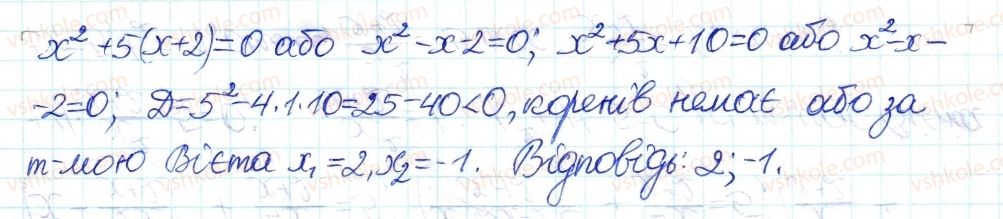 x² + 5(x+2) = 0 або x² - x - 2 = 0; x² + 5x + 10 = 0 або x² - x -
- 2 = 0; D = 5² - 4·1·10 = 25 - 40 < 0, коренів немає або за
т-мою Вієта x₁ = 2, x₂ = -1. Відповідь: 2; -1.